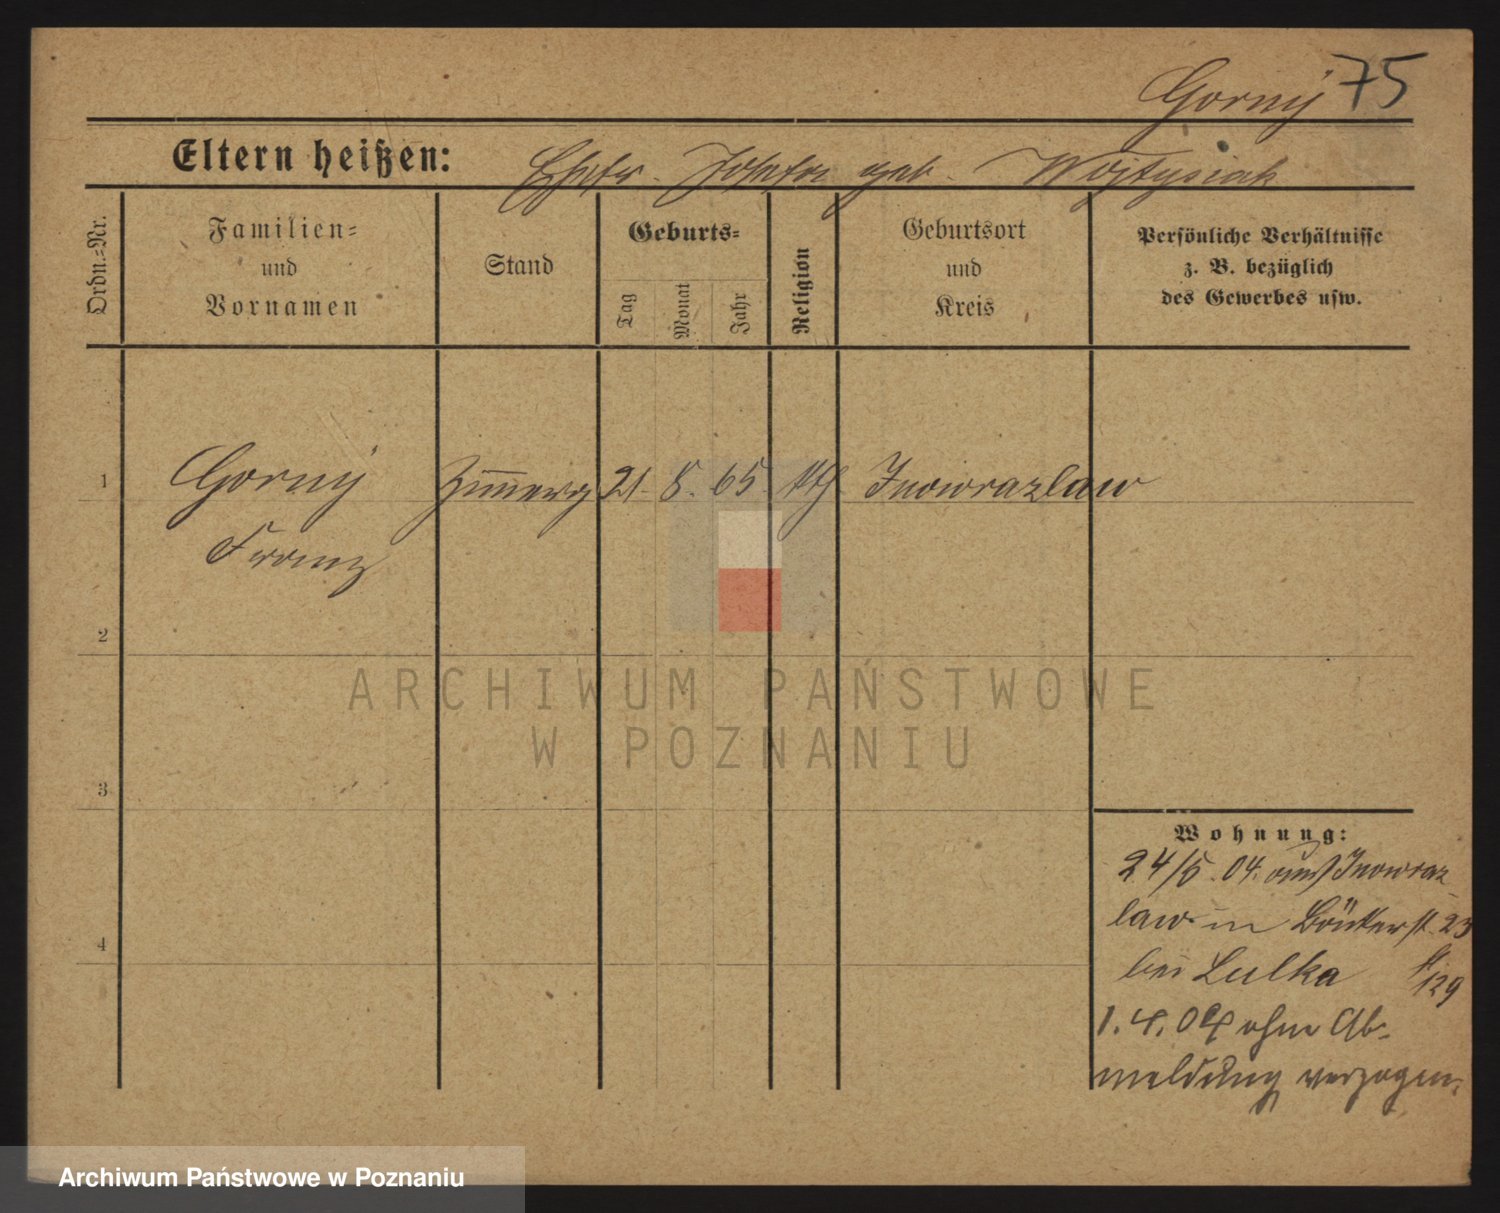 Gorny 75
Eltern heißen: Ehefr. Josefa geb. Wojtysiak
Ordn.-Nr.
Familien-
und
Vornamen
Stand
Geburts-
Tag
Monat
Jahr
Religion
Geburtsort
und
Kreis
Persönliche Verhältnisse
z. B. bezüglich
des Gewerbes usw.
1 Gorny 21. 8. 65. kth Inowrazlaw
Franz
2
ARCHIWUM PAŃSTWOWE
W POZNANIU
3
Wohnung:
24/5. 04. aus Inowraz-
law in 23
4
bei Lulka 129
1. 4. 09 ohne Ab-
meldung verzogen.
Archiwum Państwowe w Poznaniu